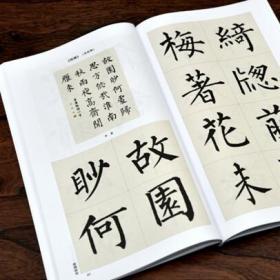 故園眇何處歸
思方悠哉淮南
秋雨夜高齋聞
雁來
故園
眇何
綺牕前
梅著花未